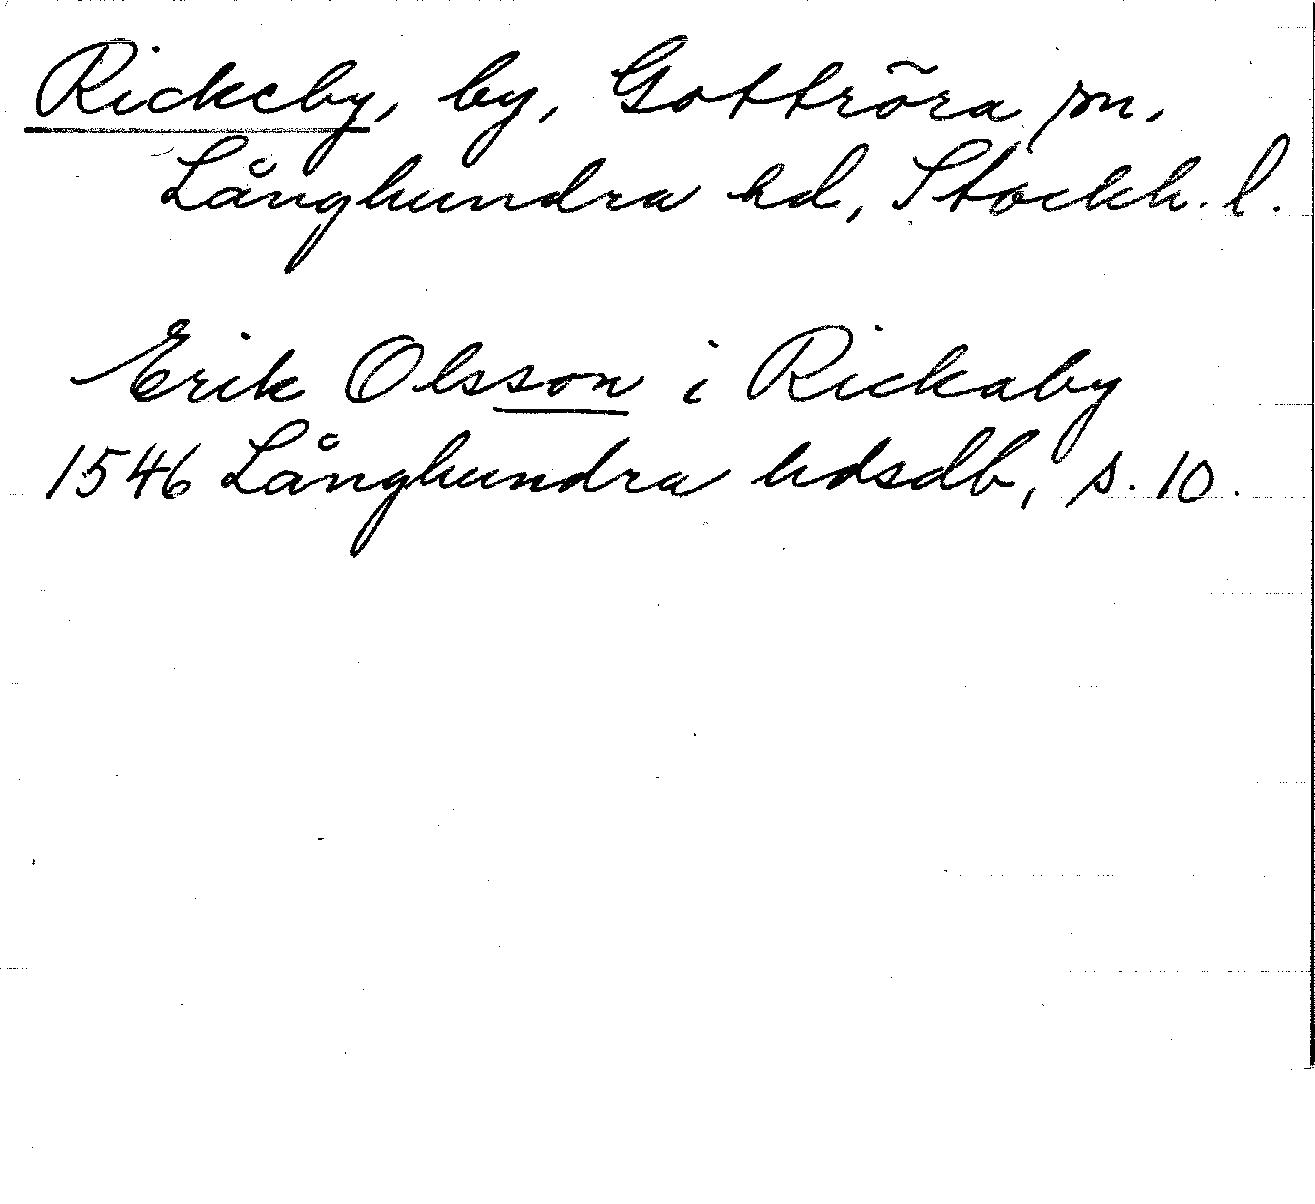 Rickeby, by, Gottröra sn.
Långhundra hd, Stockh. l.
Erik Olsson i Rickaby
1546 Långhundra hdsdb, s. 10.